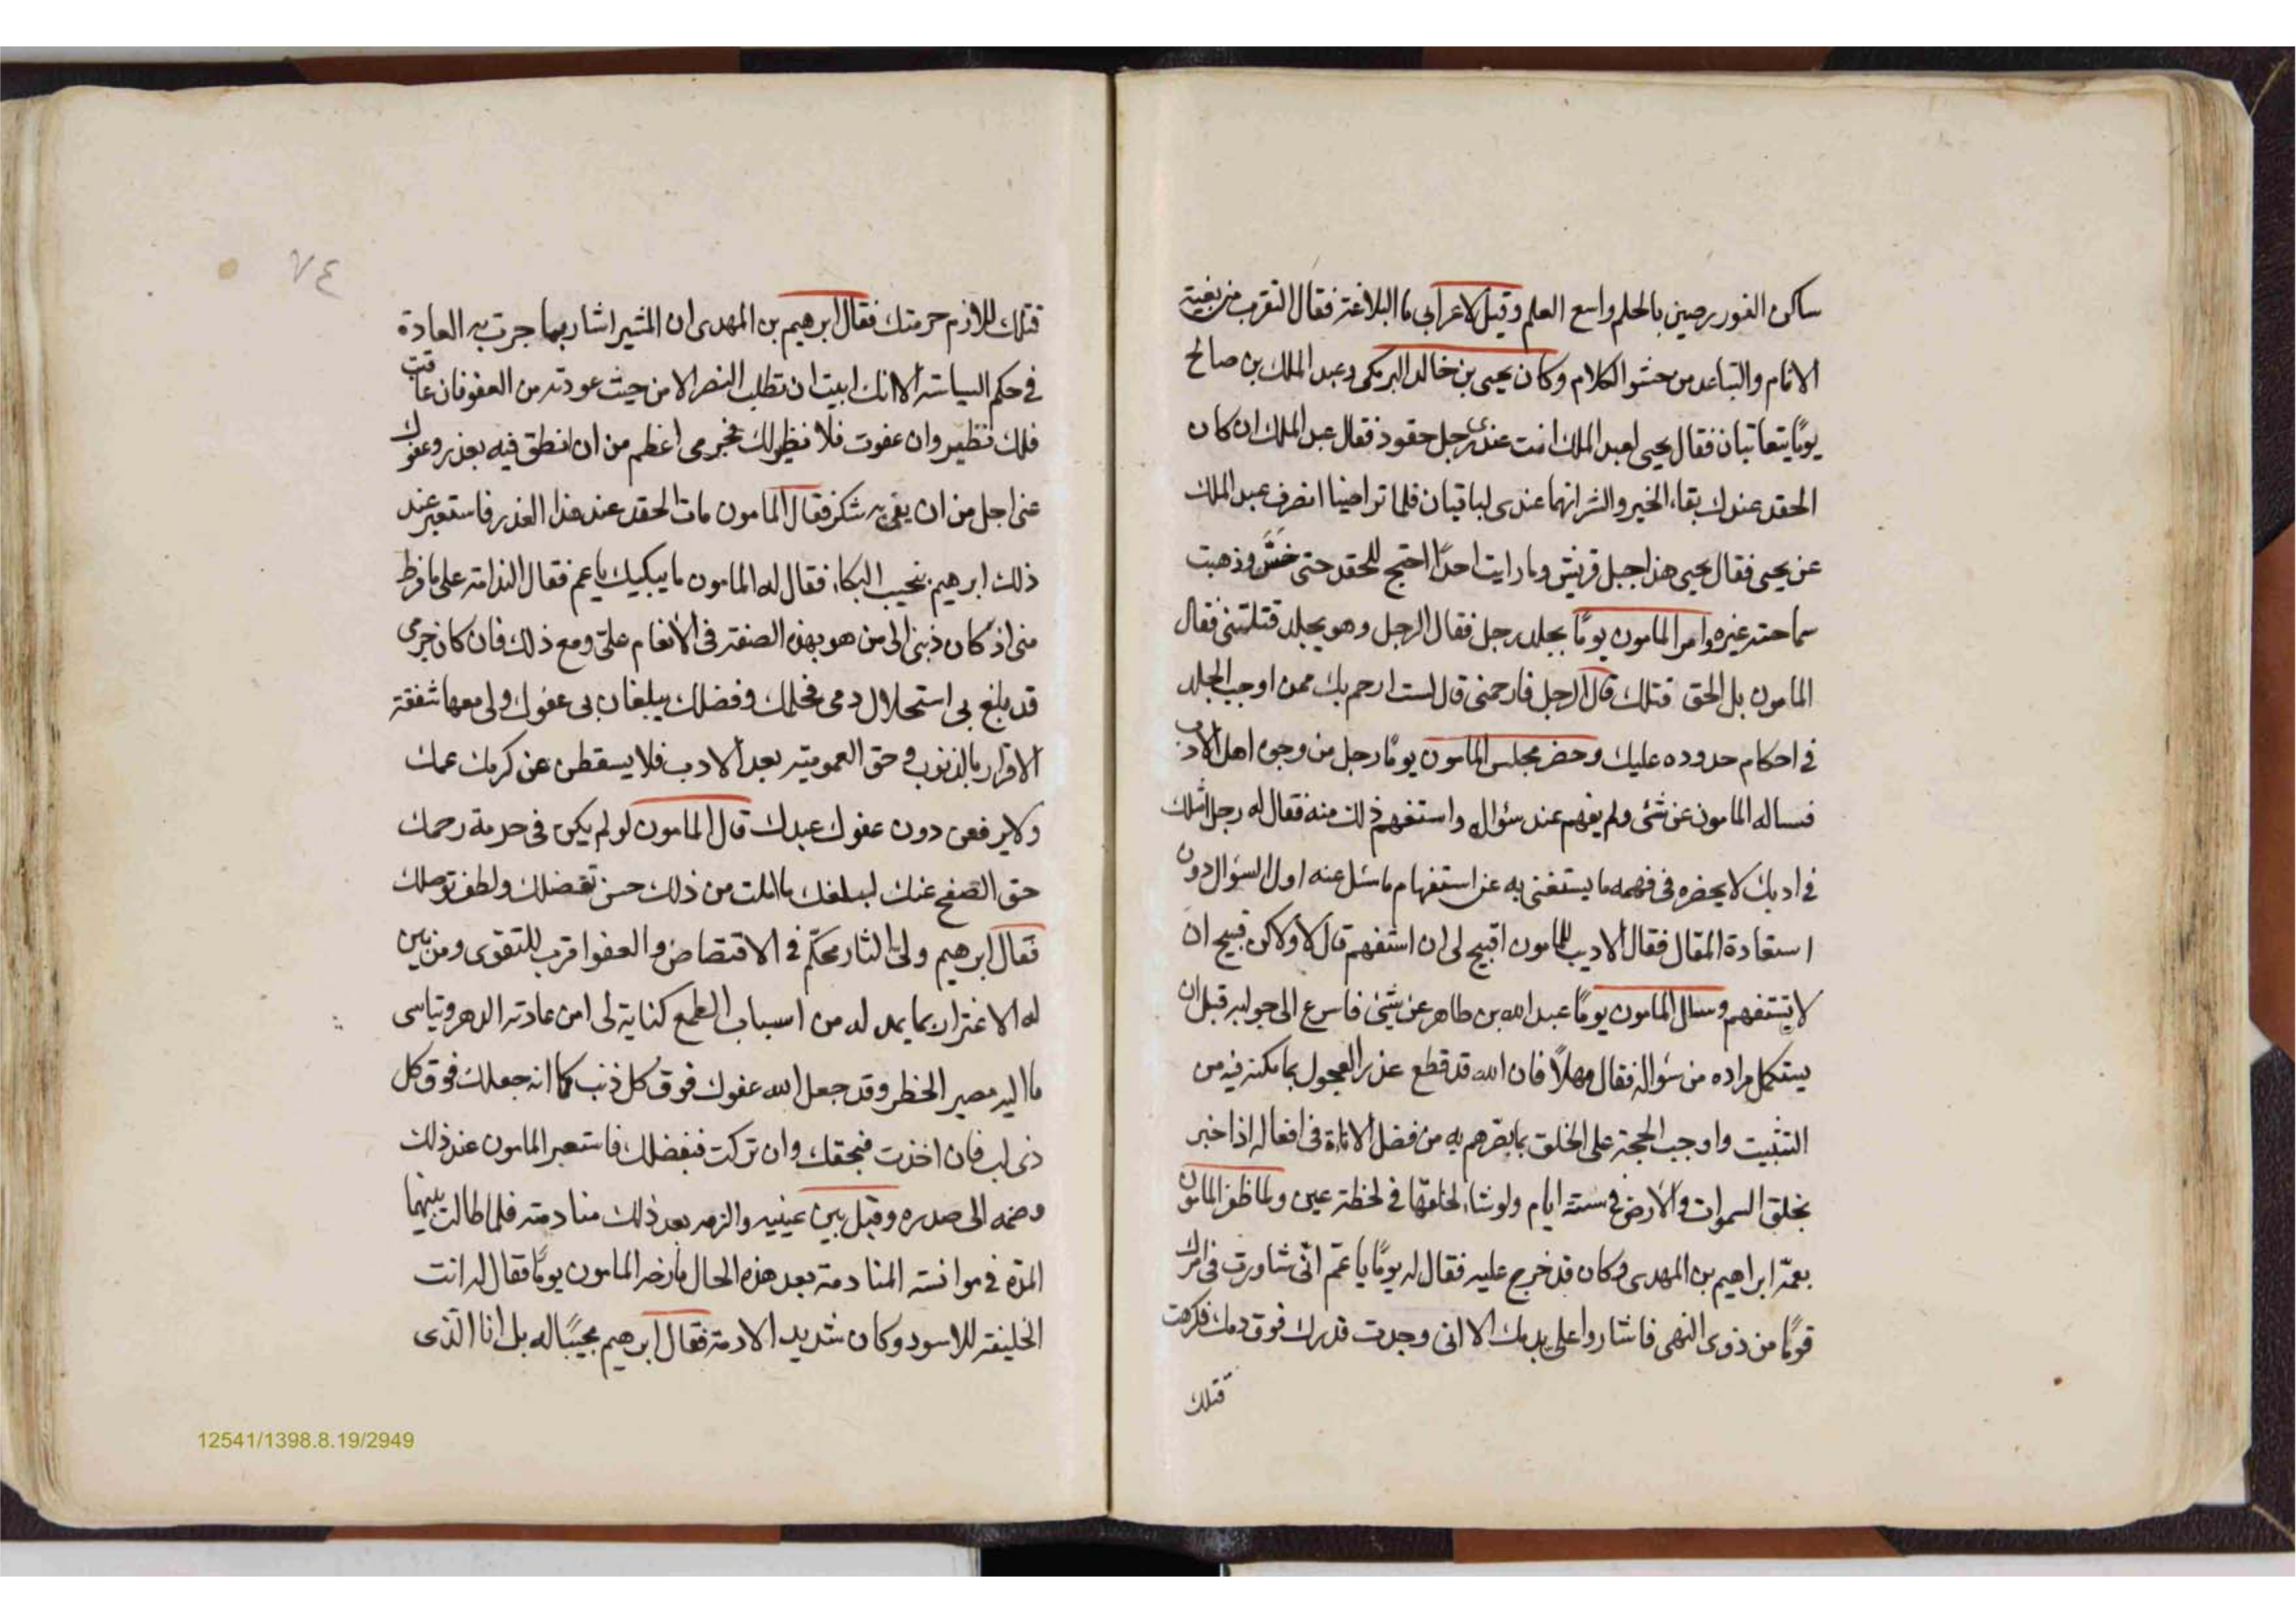 ساكن الفور رصين بالحلم واسع العلم وقيل لاعرابي ما البلاغة فقال التقرب من بغية
الانام والتباعد من حشو الكلام وكان يحيى بن خالد البرمكى وعبد الملك بن صالح
يومًا يتعاتبان فقال يحيى لعبد الملك انت عندى رجل حقود فقال عبد الملك ان كان
الحقد عندك بقاء الخير والشر انهما عندى لباقيان فلما تراضينا انصرف عبد الملك
عن يحيى فقال يحيى هذا جبل قريش وما رايت احدًا احتج للحقد حتى وذهبت
سماحته غيره وامر المامون يومًا بجلد رجل فقال الرجل وهو يجلد قتلتنى فقال
المامون بل الحق قتلك قال الرجل فارحمنى قال لست ارحم بك ممن اوجب الجلد
فى احكام حدوده عليك وحضر مجلس المامون يومًا رجل من وجوه اهل الادب
فساله المامون عن شئ ولم يفهم عند سؤاله واستفهم ذلك منه فقال له رجل امثلك
فى ادبك لا يحضره فى فهمه ما يستغنى به عن استفهام ما سئل عنه اول السؤال دون
استعادة المقال فقال الاديب للمامون اقبيح لى ان استفهم قال لا ولاكن قبيح ان
لا تستفهم وسال المامون يومًا عبد الله بن طاهر عن شيئ فاسرع الى جوابه قبل ان
يستكمل مراده من سؤاله فقال مهلًا فان الله قد قطع عذر العجول بما مكنه فيه من
التثبيت واوجب الحجة على الخلق بما بصرهم به من فضل الاناة فى افعاله اذا خبر
بخلق السموات والارض فى ستة ايام ولو شاء لخلقها فى لحظة عين ولما ظفر المامون
بعمّه ابراهيم بن المهدى وكان قد خرج عليه فقال له يومًا يا عمّ انّى شاورت فى امرك
قومًا من ذوى النهى فاشاروا على بدمك الا انى وجدت قدرك فوق دمك فكرهت
قتلك
٧٤
قتلك للازم حرمتك فقال ابرهيم بن المهدى ان المشير اشار بما جرت به العادة
فى حكم السياسة الا انك ابيت ان تطلب النصر الا من حيث عودته من العفو فان عاقبت
فلك نظير وان عفوت فلا نظير لك فجرمى اعظم من ان انطق فيه بعذر وعفوك
عنى اجل من ان يفى به شكر فقال المامون مات الحقد عند هذا العذر فاستعبر عند
ذلك ابرهيم بنحيب البكاء فقال له المامون ما يبكيك يا عم فقال الندامة على ما فرط
منى اذ كان ذنبى الى من هو بهذه الصفة فى الانعام علىّ ومع ذلك فان كان جرمى
قد بلغ بى استحلال دمى فحلمك وفضلك يبلغان بى عفوك ولى معها شفقة
الاقرار بالذنوب وحق العمومية بعد الادب فلا يسقطن عن كرمك عمك
ولا يرفعن دون عفوك عبدك قال المامون لو لم يكن فى حرمة رحمك
حق الصفح عنك لبلغك ما املت من ذلك حسن تفضلك ولطف توصلك
فقال ابرهيم ولىّ الثار محكّم فى الاقتصاص والعفو اقرب للتقوى ومن بين
له الاغترار بما يمد له من اسباب الطمع كناية لى امن عادته الدهر وتياسى
ما اليه مصير الخطر وقد جعل الله عفوك فوق كل ذنب كما انه جعلك فوق كل
ذى لب فان اخذت فبحقك وان تركت فبفضلك فاستعبر المامون عند ذلك
وضمه الى صدره وقبل بين عينيه والزمه بعد ذلك منادمته فلما طالت بينهما
المدّة فى موانسة المنادمة بعد هذه الحال مازحه المامون يومًا فقال له انت
الخليفة للاسود وكان شديد الادمة فقال ابرهيم مجيبًا له بل انا الّذى
12541/1398.8.19/2949